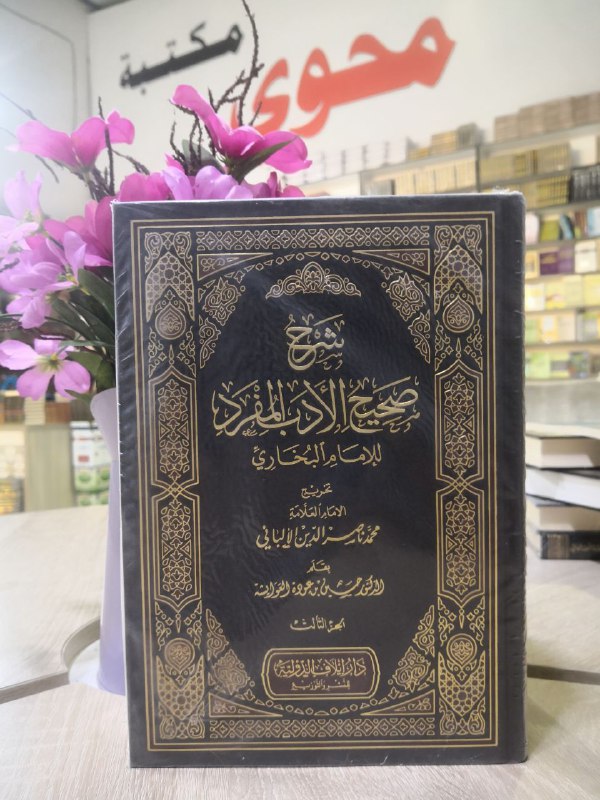 مكتبة
محوي
شرح
صحيح الأدب المفرد
للإمام البخاري
تخريج
الإمام العلامة
محمد ناصر الدين الألباني
بقلم
الدكتور حسين بن عودة العوايشة
الجزء الثالث
دار إيلاف الدولية
للنشر والتوزيع